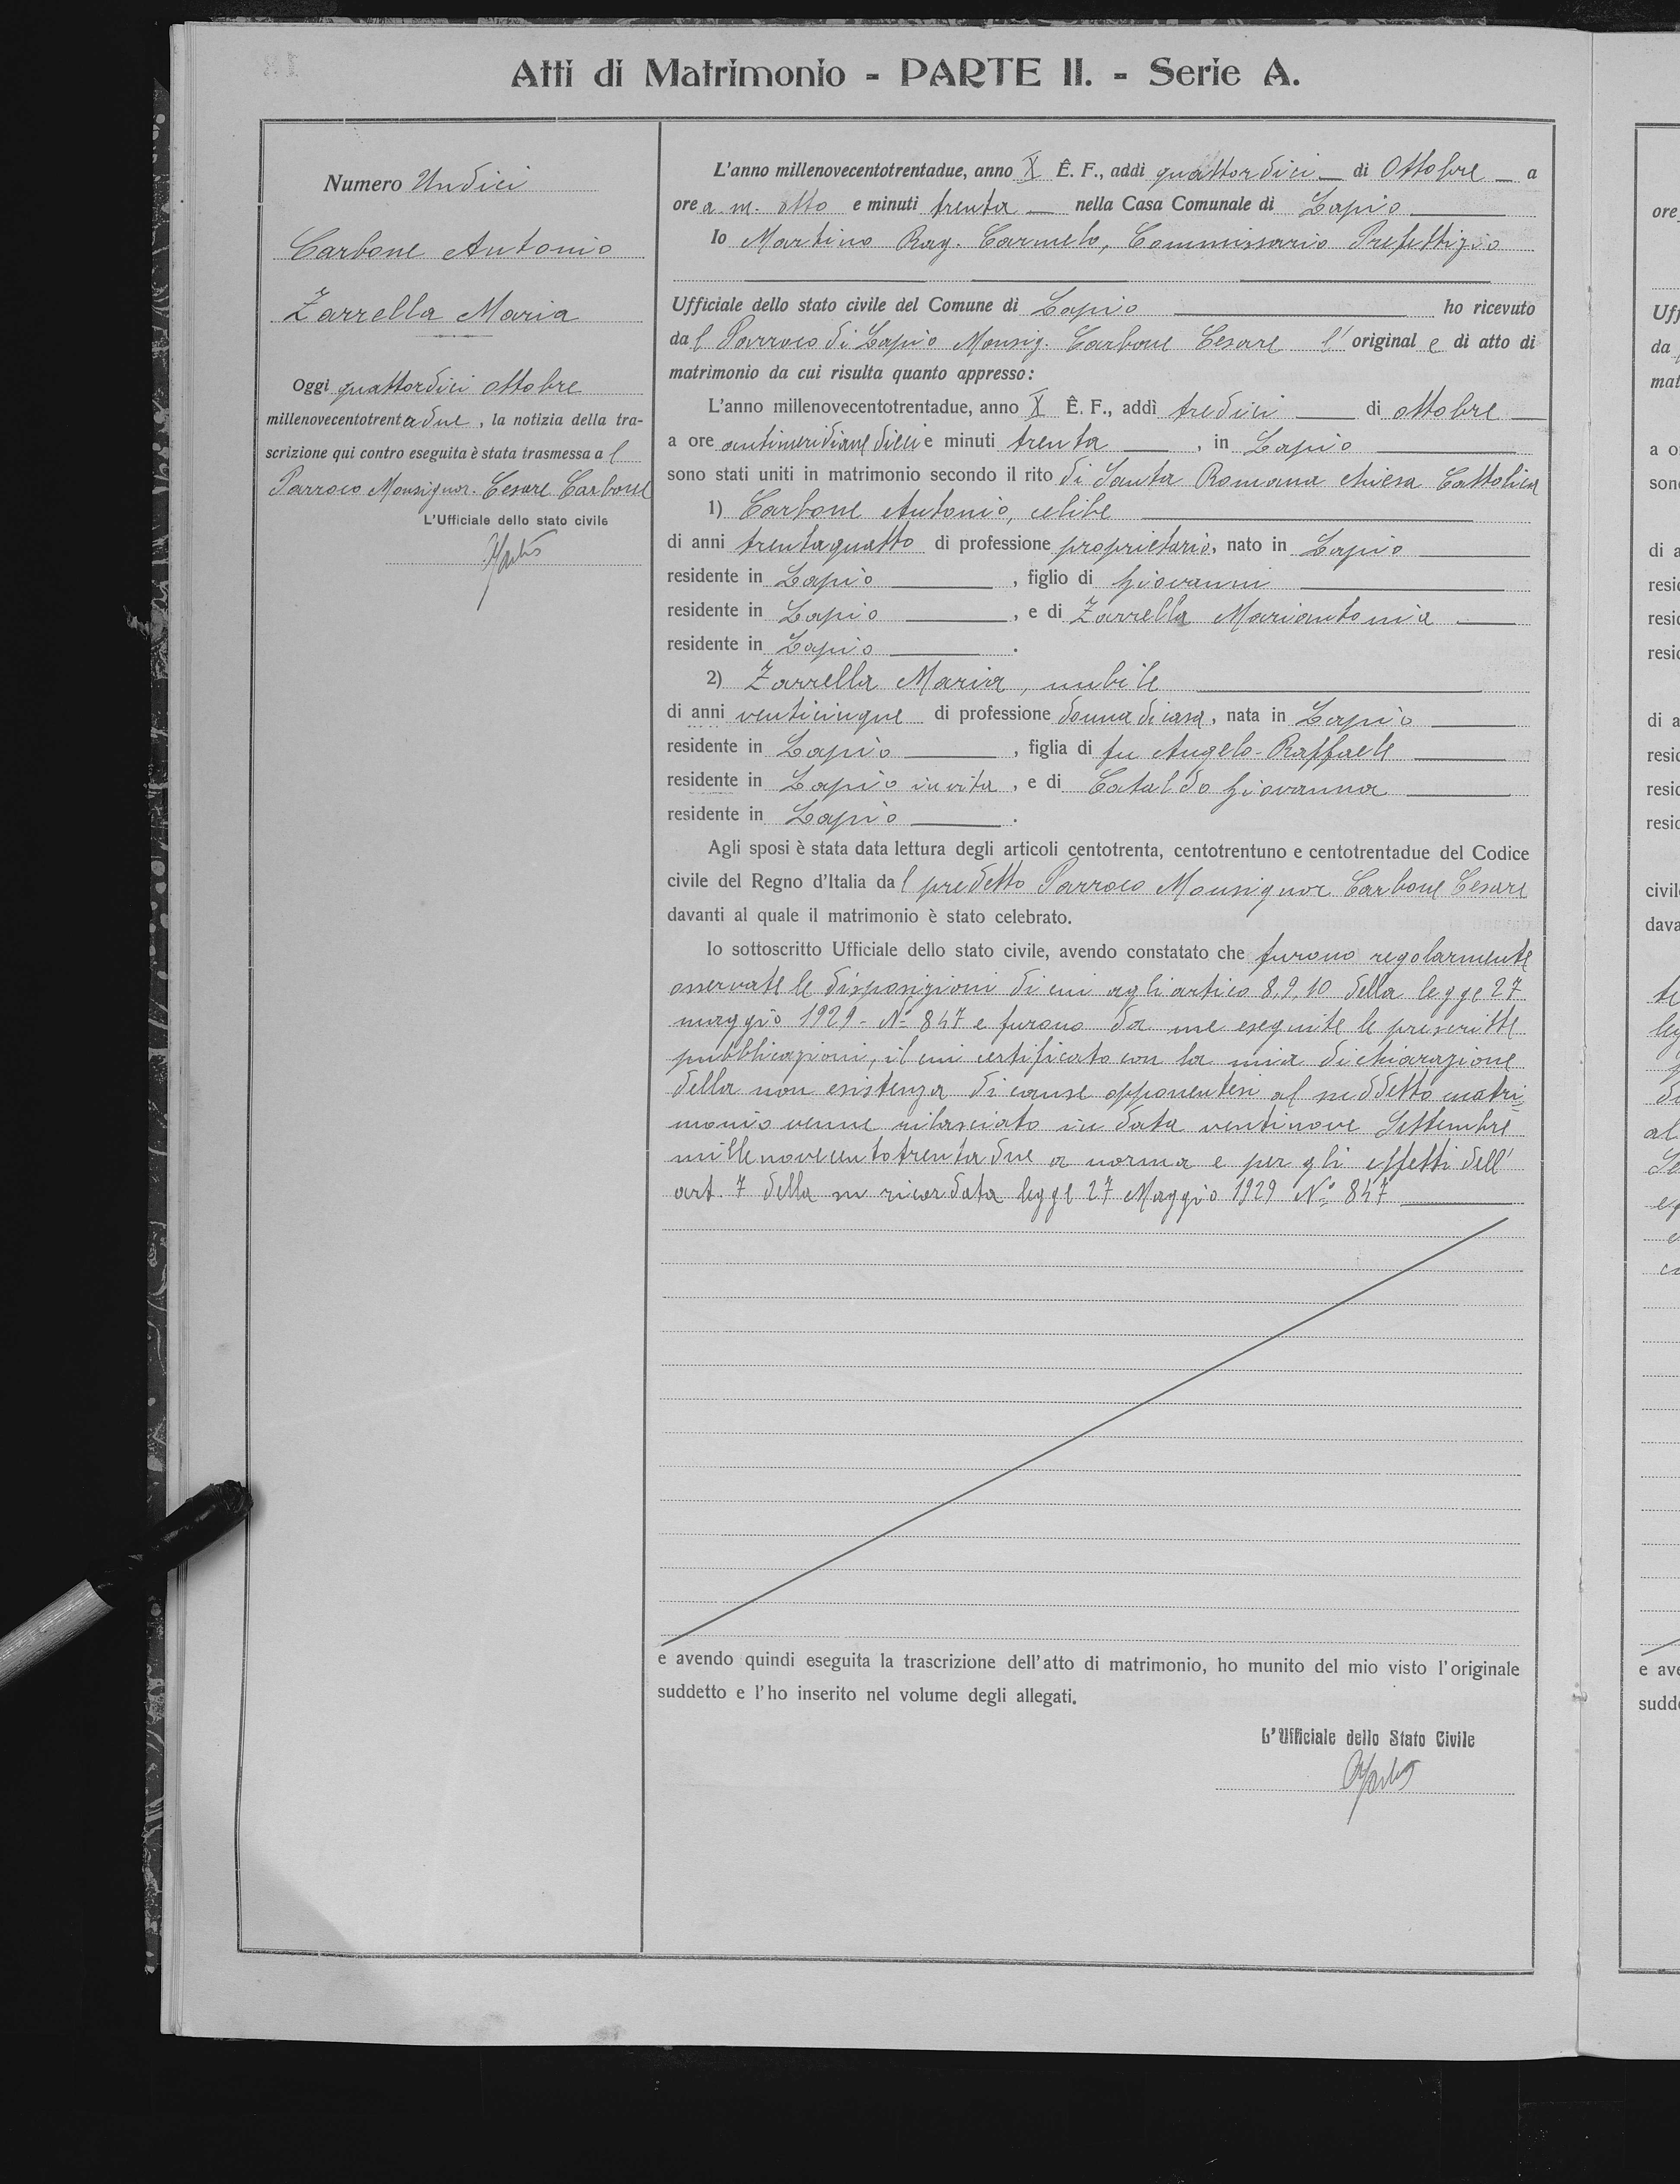 Atti di Matrimonio - PARTE II. - Serie A.
Numero Undici
Carbone Antonio
Zarrella Maria
Oggi quattordici ottobre
millenovecentotrentadue, la notizia della tra-
scrizione qui contro eseguita è stata trasmessa al
Parroco Monsignor. Cesare Carbone
L'Ufficiale dello stato civile
L'anno millenovecentotrentadue, anno X E. F., addì quattordici di Ottobre a
ore a. m. otto e minuti trenta nella Casa Comunale di Lapio
Io Martino Rag. Carmelo, Commissario Prefettizio
Ufficiale dello stato civile del Comune di Lapio ho ricevuto
dal Parroco di Lapio Monsig. Carbone Cesare l'originale di atto di
matrimonio da cui risulta quanto appresso:
L'anno millenovecentotrentadue, anno X E. F., addì tredici di ottobre
a ore antimeridiane dieci e minuti trenta, in Lapio
sono stati uniti in matrimonio secondo il rito di Santa Romana chiesa Cattolica
1) Carbone Antonio, celibe
di anni trentaquatto di professione proprietario, nato in Lapio
residente in Lapio, figlio di Giovanni
residente in Lapio, e di Zarrella Mariantonia
residente in Lapio.
2) Zarrella Maria, nubile
di anni venticinque di professione donna di casa, nata in Lapio
residente in Lapio, figlia di fu Angelo-Raffaele
residente in Lapio in vita, e di Cataldo Giovanna
residente in Lapio.
Agli sposi è stata data lettura degli articoli centotrenta, centotrentuno e centotrentadue del Codice
civile del Regno d'Italia dal predetto Parroco Monsignor Carbone Cesare
davanti al quale il matrimonio è stato celebrato.
Io sottoscritto Ufficiale dello stato civile, avendo constatato che furono regolarmente
osservate le disposizioni di cui agli artico 8, 9, 10 della legge 27
maggio 1929 - Nº 847 e furono da me eseguite le prescritte
pubblicazioni, il cui certificato con la mia dichiarazione
della non esistenza di cause opponentesi al suddetto matri=
monio venne rilasciato in data ventinove Settembre
millenovecentotrentadue a norma e per gli effetti dell'
art. 7 della su ricordata legge 27 Maggio 1929 Nº 847
e avendo quindi eseguita la trascrizione dell'atto di matrimonio, ho munito del mio visto l'originale
suddetto e l'ho inserito nel volume degli allegati.
L'Ufficiale dello Stato Civile